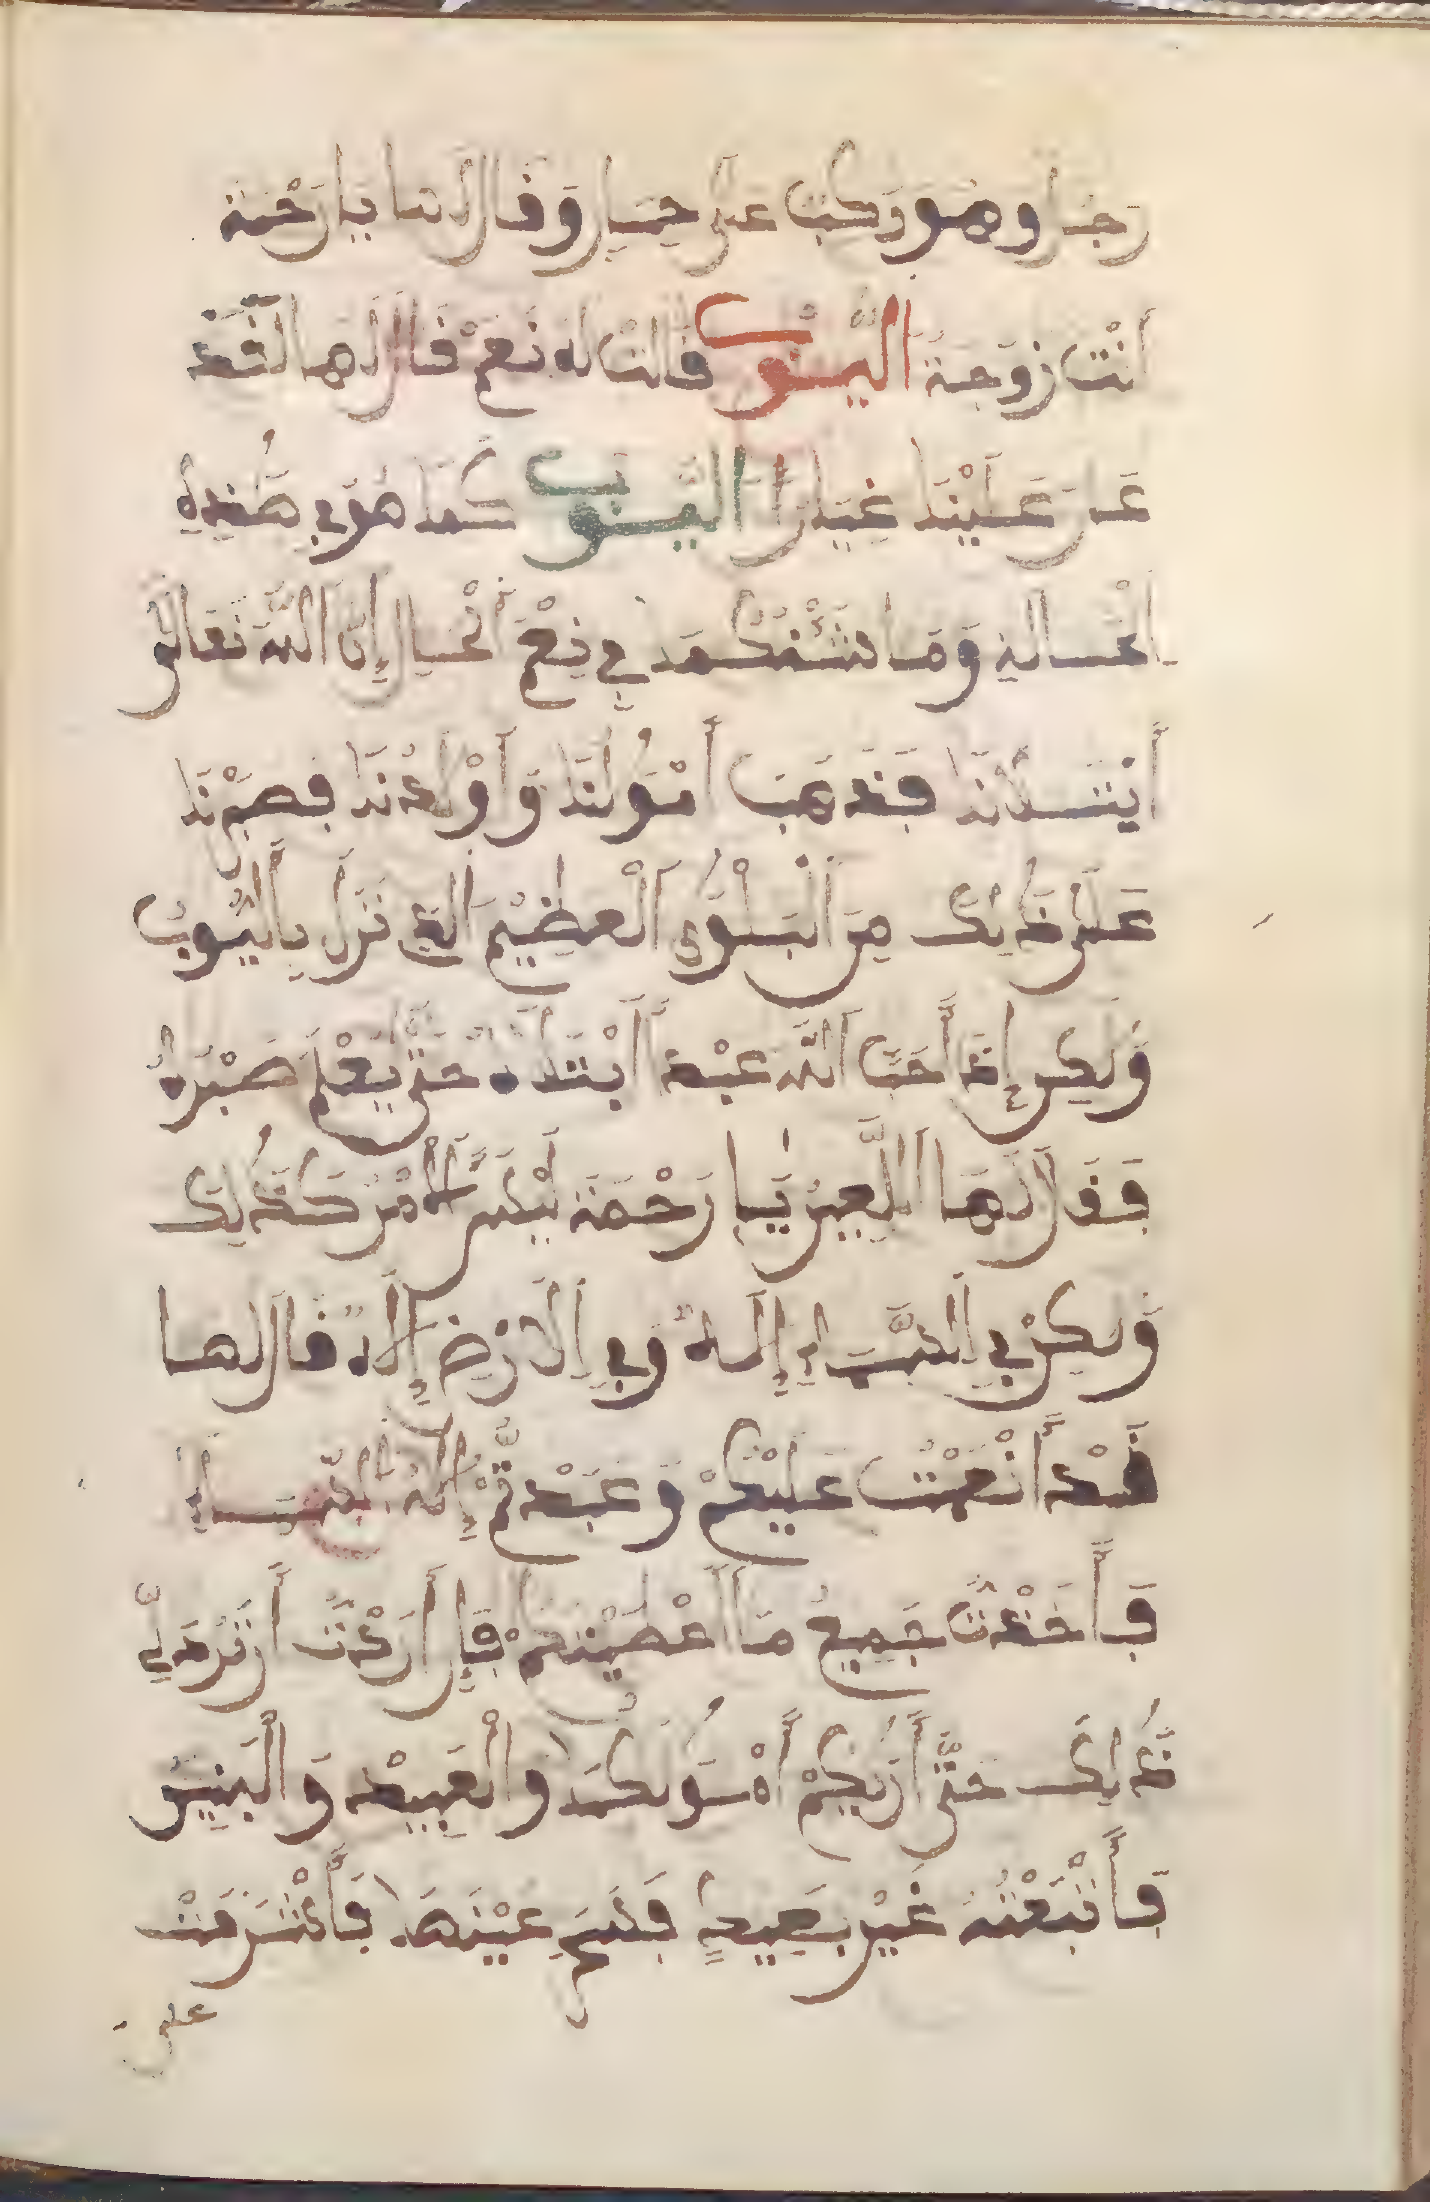 رجل وهو ركب على حمار وقال لها يا رحمة
أَنْتِ زوجة أَيُّوب قالت له نَعَمْ قال لها لقد
عَلَيْنَا أَيُّوب كَمَا هُوَ فِي هَذِهِ
الحالة وَمَا كُنْتُمَا فِي نِعْمَ الحال إِنَّ اللَّهَ تعالى
أَمْوَلُنَا وَأَوْلَادُنَا فصبرنا
عَلَى ذَلِكَ مِنَ الْبَلْوَى الْعَظِيم الَّذِي نَزَلَ بِأَيُّوب
وَلَكِن إِذَا أَحَبَّ اللَّه عَبْدًا ابْتَلَاهُ حَتَّى يَعْلَمَ صَبْرَهُ
فَقَالَ لَهَا اللَّعِينُ يَا رَحْمَة لَيْسَ الأَمْرُ كَذَلِكَ
وَلَكِنْ فِي السَّمَاءِ إِلَه وَفِي الأَرْضِ إِلَه قال لها
قَدْ أَنْعَمْتُ عَلَيْكُمْ وَعَبَدْتُمْ إِلَهَ السَّمَاءِ
فَأَخَذْتُ جَمِيعَ مَا أَعْطَيْتُكُمْ فَإِن أَرَدْتِ أَن نَرُدَّ لَكِ
ذَلِكَ حَتَّى أُرِيكُمْ أَمْوَلَكُمَا وَالْعَبِيد وَالْبَنِين
فَأَتْبَعَتْهُ غَيْر بَعِيدٍ عَيْنَهَا فَأَشْرَفَتْ
على